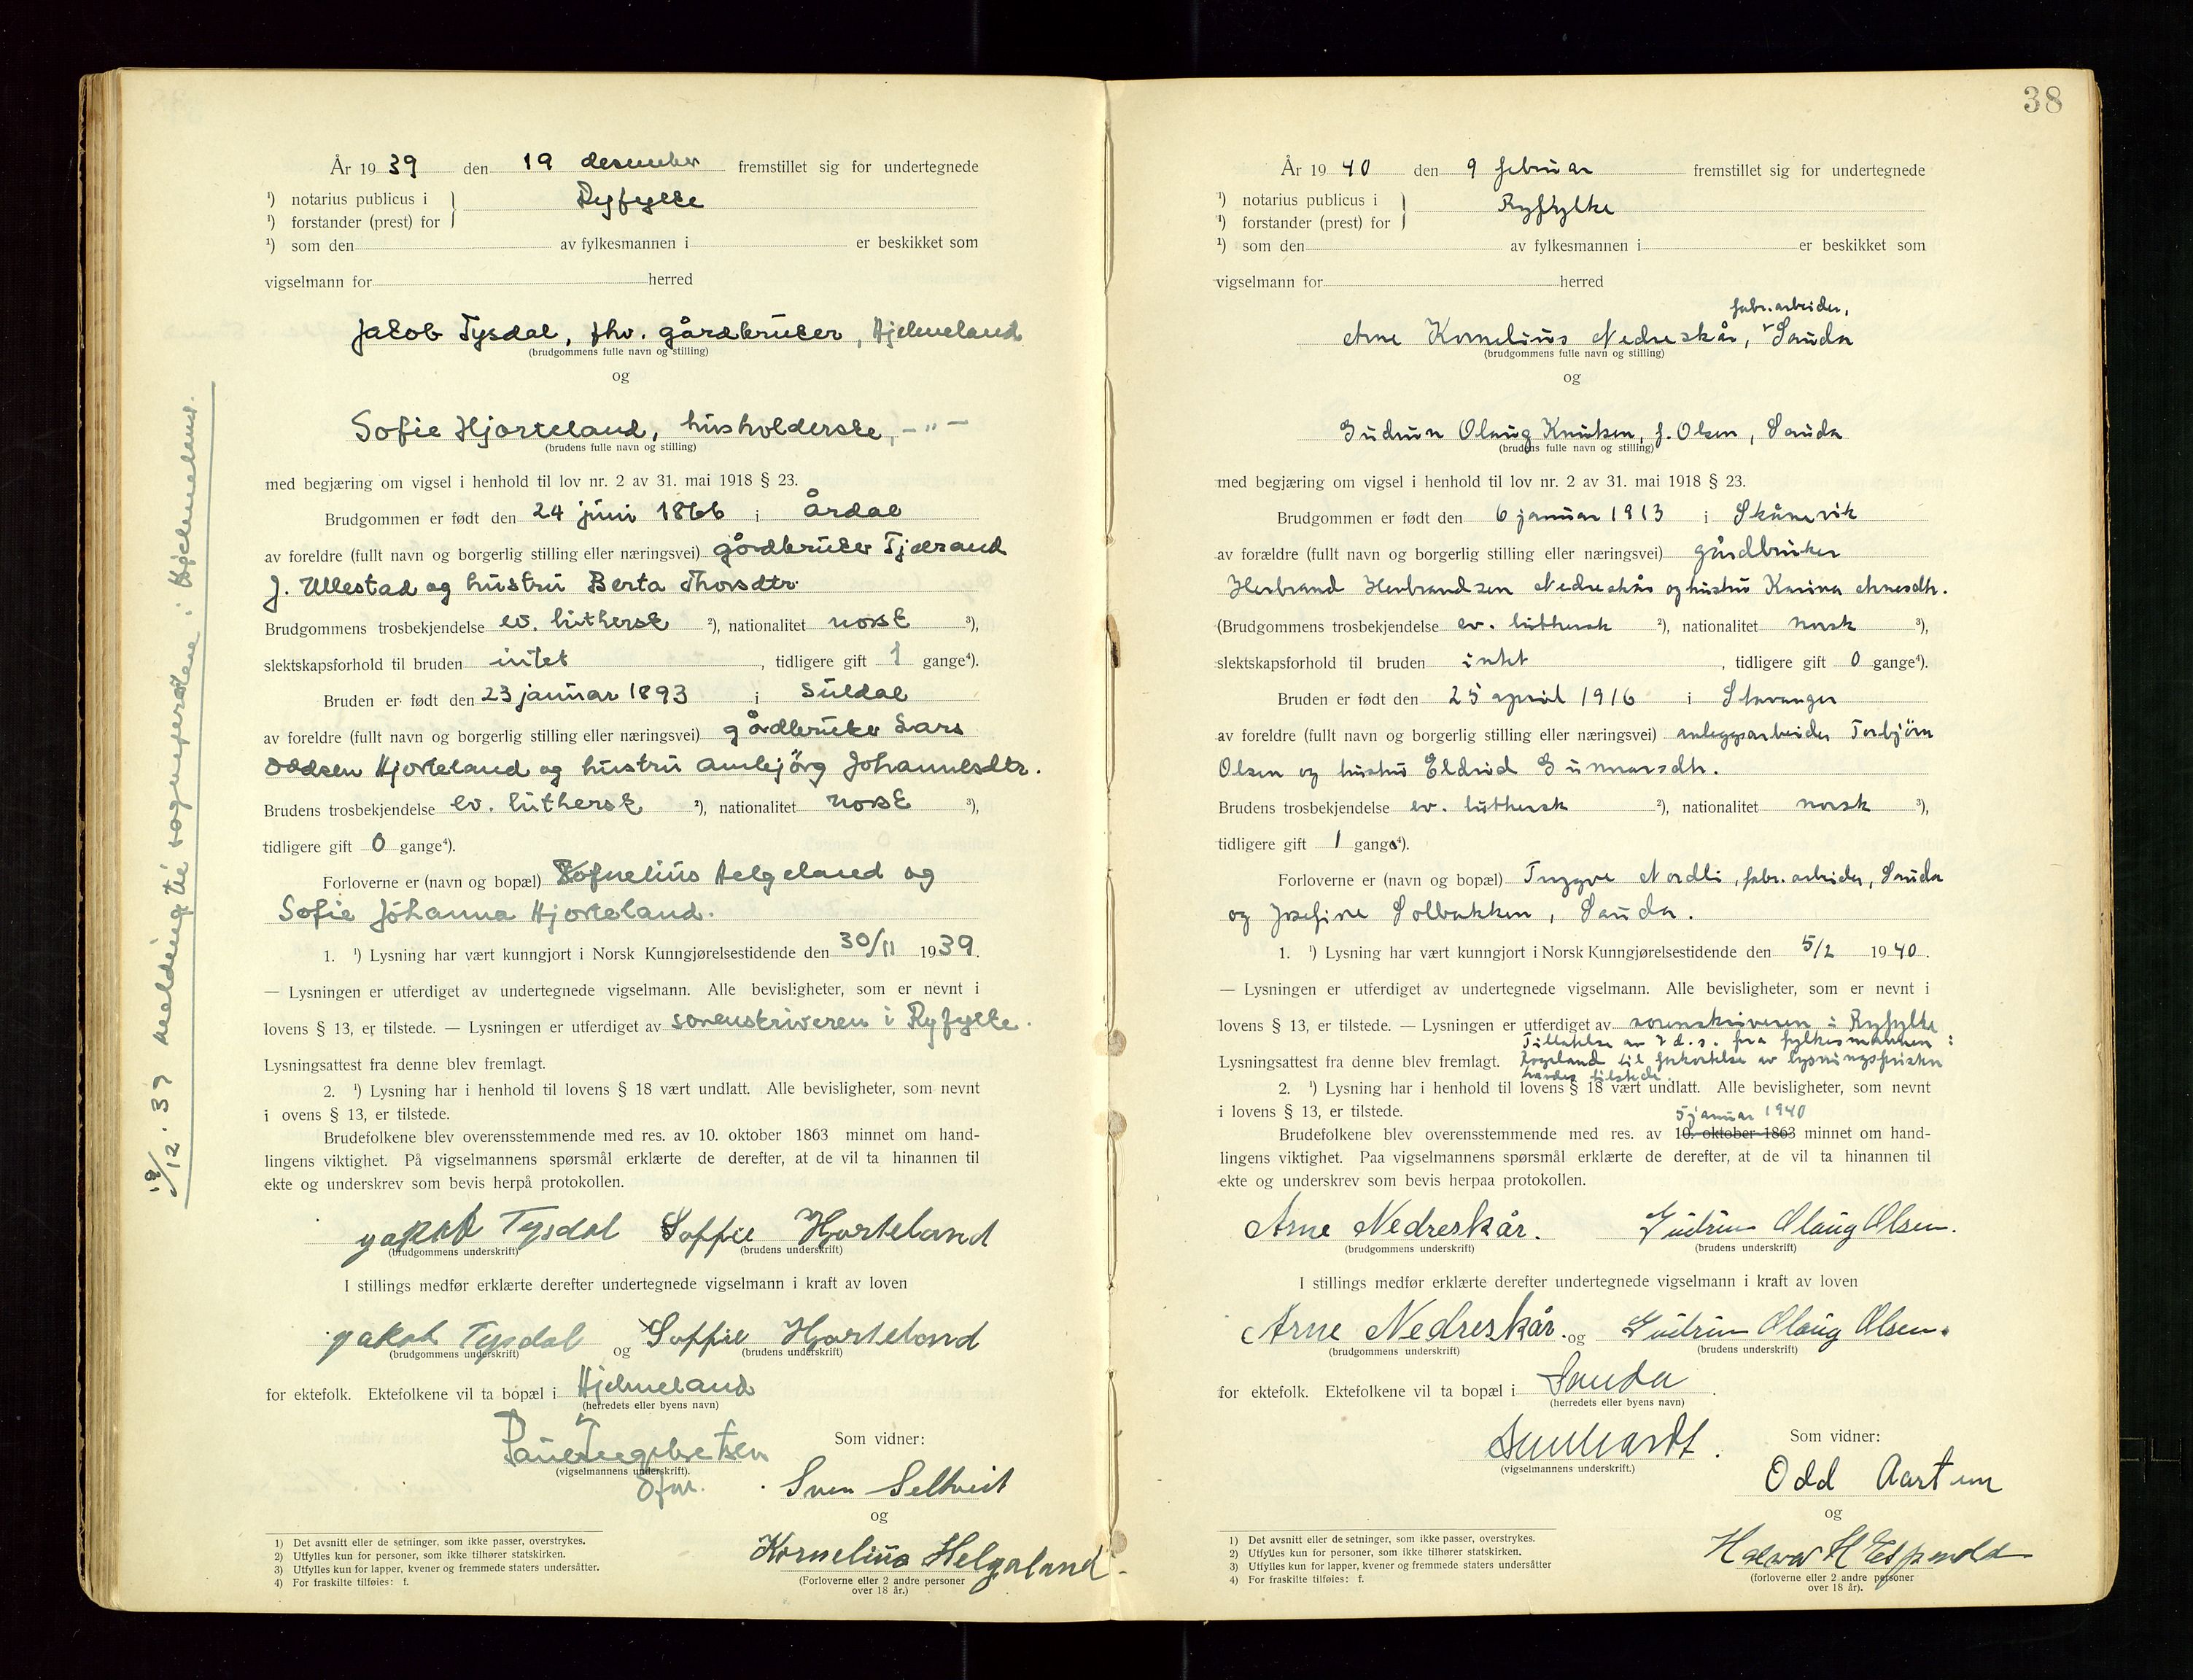 År 19 39 den 19 desember fremstillet sig for undertegnede
¹) notarius publicus i } Ryfylke
¹) forstander (prest) for
¹) som den av fylkesmannen i er beskikket som
vigselmann for herred
Jakob Tysdal, fhv. gårdbruker, Hjelmeland
(brudgommens fulle navn og stilling)
og
Sofie Hjorteland, husholderske, -"-
(brudens fulle navn og stilling)
med begjæring om vigsel i henhold til lov nr. 2 av 31. mai 1918 § 23.
Brudgommen er født den 24 juni 1866 i Årdal
av foreldre (fullt navn og borgerlig stilling eller næringsvei) gårdbruker Tjærand
J. Ullestad og hustru Berta Thorsdtr.
Brudgommens trosbekjendelse ev. luthersk ²), nationalitet norsk ³),
slektskapsforhold til bruden intet , tidligere gift 1 gange⁴).
Bruden er født den 23 januar 1893 i Suldal
av foreldre (fullt navn og borgerlig stilling eller næringsvei) gårdbruker Lars
Oddsen Hjorteland og hustru Ambjörg Johannesdtr.
Brudens trosbekjendelse ev. luthersk ²), nationalitet norsk ³),
tidligere gift 0 gange⁴).
Forloverne er (navn og bopæl) Kornelius Helgeland og
Sofie Johanna Hjorteland.
1. ¹) Lysning har vært kunngjort i Norsk Kunngjørelsestidende den 30/11 1939.
— Lysningen er utferdiget av undertegnede vigselmann. Alle bevisligheter, som er nevnt i
lovens § 13, er tilstede. — Lysningen er utferdiget av sorenskriveren i Ryfylke.
Lysningsattest fra denne blev fremlagt.
2. ¹) Lysning har i henhold til lovens § 18 vært undlatt. Alle bevisligheter, som nevnt
i ovens § 13, er tilstede.
Brudefolkene blev overensstemmende med res. av 10. oktober 1863 minnet om hand-
lingens viktighet. På vigselmannens spørsmål erklærte de derefter, at de vil ta hinannen til
ekte og underskrev som bevis herpå protokollen.
Jakob Tysdal Soffie Hjorteland
(brudgommens underskrift) (brudens underskrift)
I stillings medfør erklærte derefter undertegnede vigselmann i kraft av loven
Jakob Tysdal og Soffie Hjorteland
(brudgommens underskrift) (brudens underskrift)
for ektefolk. Ektefolkene vil ta bopæl i Hjelmeland
(herredets eller byens navn)
Paul Ingebretsen
(vigselmannens underskrift).
Som vidner:
Sven Seltveit
og
Kornelius Helgaland
(Forloverne eller 2 andre personer
over 18 år.)
1) Det avsnitt eller de setninger, som ikke passer, overstrykes.
2) Utfylles kun for personer, som ikke tilhører statskirken.
3) Utfylles kun for lapper, kvener og fremmede staters undersåtter.
4) For fraskilte tilføies: f.
19/12.39 melding til sognepresten i Hjelmeland.
38
År 19 40 den 9 februar fremstillet sig for undertegnede
¹) notarius publicus i } Ryfylke
¹) forstander (prest) for
¹) som den av fylkesmannen i er beskikket som
vigselmann for herred
fabr.arbeider,
Arne Kornelius Nedreskår, Sauda
(brudgommens fulle navn og stilling)
og
Gudrun Olaug Knutsen, f. Olsen, Sauda
(brudens fulle navn og stilling)
med begjæring om vigsel i henhold til lov nr. 2 av 31. mai 1918 § 23.
Brudgommen er født den 6 januar 1913 i Skånevik
av forældre (fullt navn og borgerlig stilling eller næringsvei) gårdbruker
Herbrand Herbrandsen Nedreskår og hustru Karina Arnesdtr.
(Brudgommens trosbekjendelse ev. luthersk ²), nationalitet norsk ³),
slektskapsforhold til bruden intet , tidligere gift 0 gange⁴).
Bruden er født den 25 april 1916 i Stavanger
av foreldre (fullt navn og borgerlig stilling eller næringsvei) anleggsarbeider Torbjörn
Olsen og hustru Eldrid Gunnarsdtr.
Brudens trosbekjendelse ev. luthersk ²), nationalitet norsk ³),
tidligere gift 1 gange⁴).
Forloverne er (navn og bopæl) Trygve Nordli, fabr.arbeider, Sauda
og Josefine Solbakken, Sauda.
1. ¹) Lysning har vært kunngjort i Norsk Kunngjørelsestidende den 5/2 1940.
— Lysningen er utferdiget av undertegnede vigselmann. Alle bevisligheter, som er nevnt i
lovens § 13, er tilstede. — Lysningen er utferdiget av sorenskriveren i Ryfylke
Tillatelse av 7 d.s. fra fylkesmannen i
Lysningsattest fra denne blev fremlagt. Rogaland til forkortelse av lysningsfristen
haves tilstede.
2. ¹) Lysning har i henhold til lovens § 18 vært undlatt. Alle bevisligheter, som nevnt
i lovens § 13, er tilstede.
5 januar 1940
Brudefolkene blev overensstemmende med res. av 10. oktober 1863 minnet om hand-
lingens viktighet. Paa vigselmannens spørsmål erklærte de derefter, at de vil ta hinannen til
ekte og underskrev som bevis herpaa protokollen.
Arne Nedreskår. Gudrun Olaug Olsen.
(brudgommens underskrift) (brudens underskrift)
I stillings medfør erklærte derefter undertegnede vigselmann i kraft av loven
Arne Nedreskår. og Gudrun Olaug Olsen.
(brudgommens underskrift) (brudens underskrift)
for ektefolk. Ektefolkene vil ta bopæl i Sauda
(herredets eller byens navn)
(vigselmannens underskrift.)
Som vidner:
Odd Aartun
og
(forloverne eller 2 andre personer
over 18 år).
1) Det avsnitt eller de setninger, som ikke passer, overstrykes.
2) Utfylles kun for personer, som ikke tilhører statskirken.
3) Utfylles kun for lapper, kvener og fremmede staters undersåtter
4) For fraskilte tilføies: f.